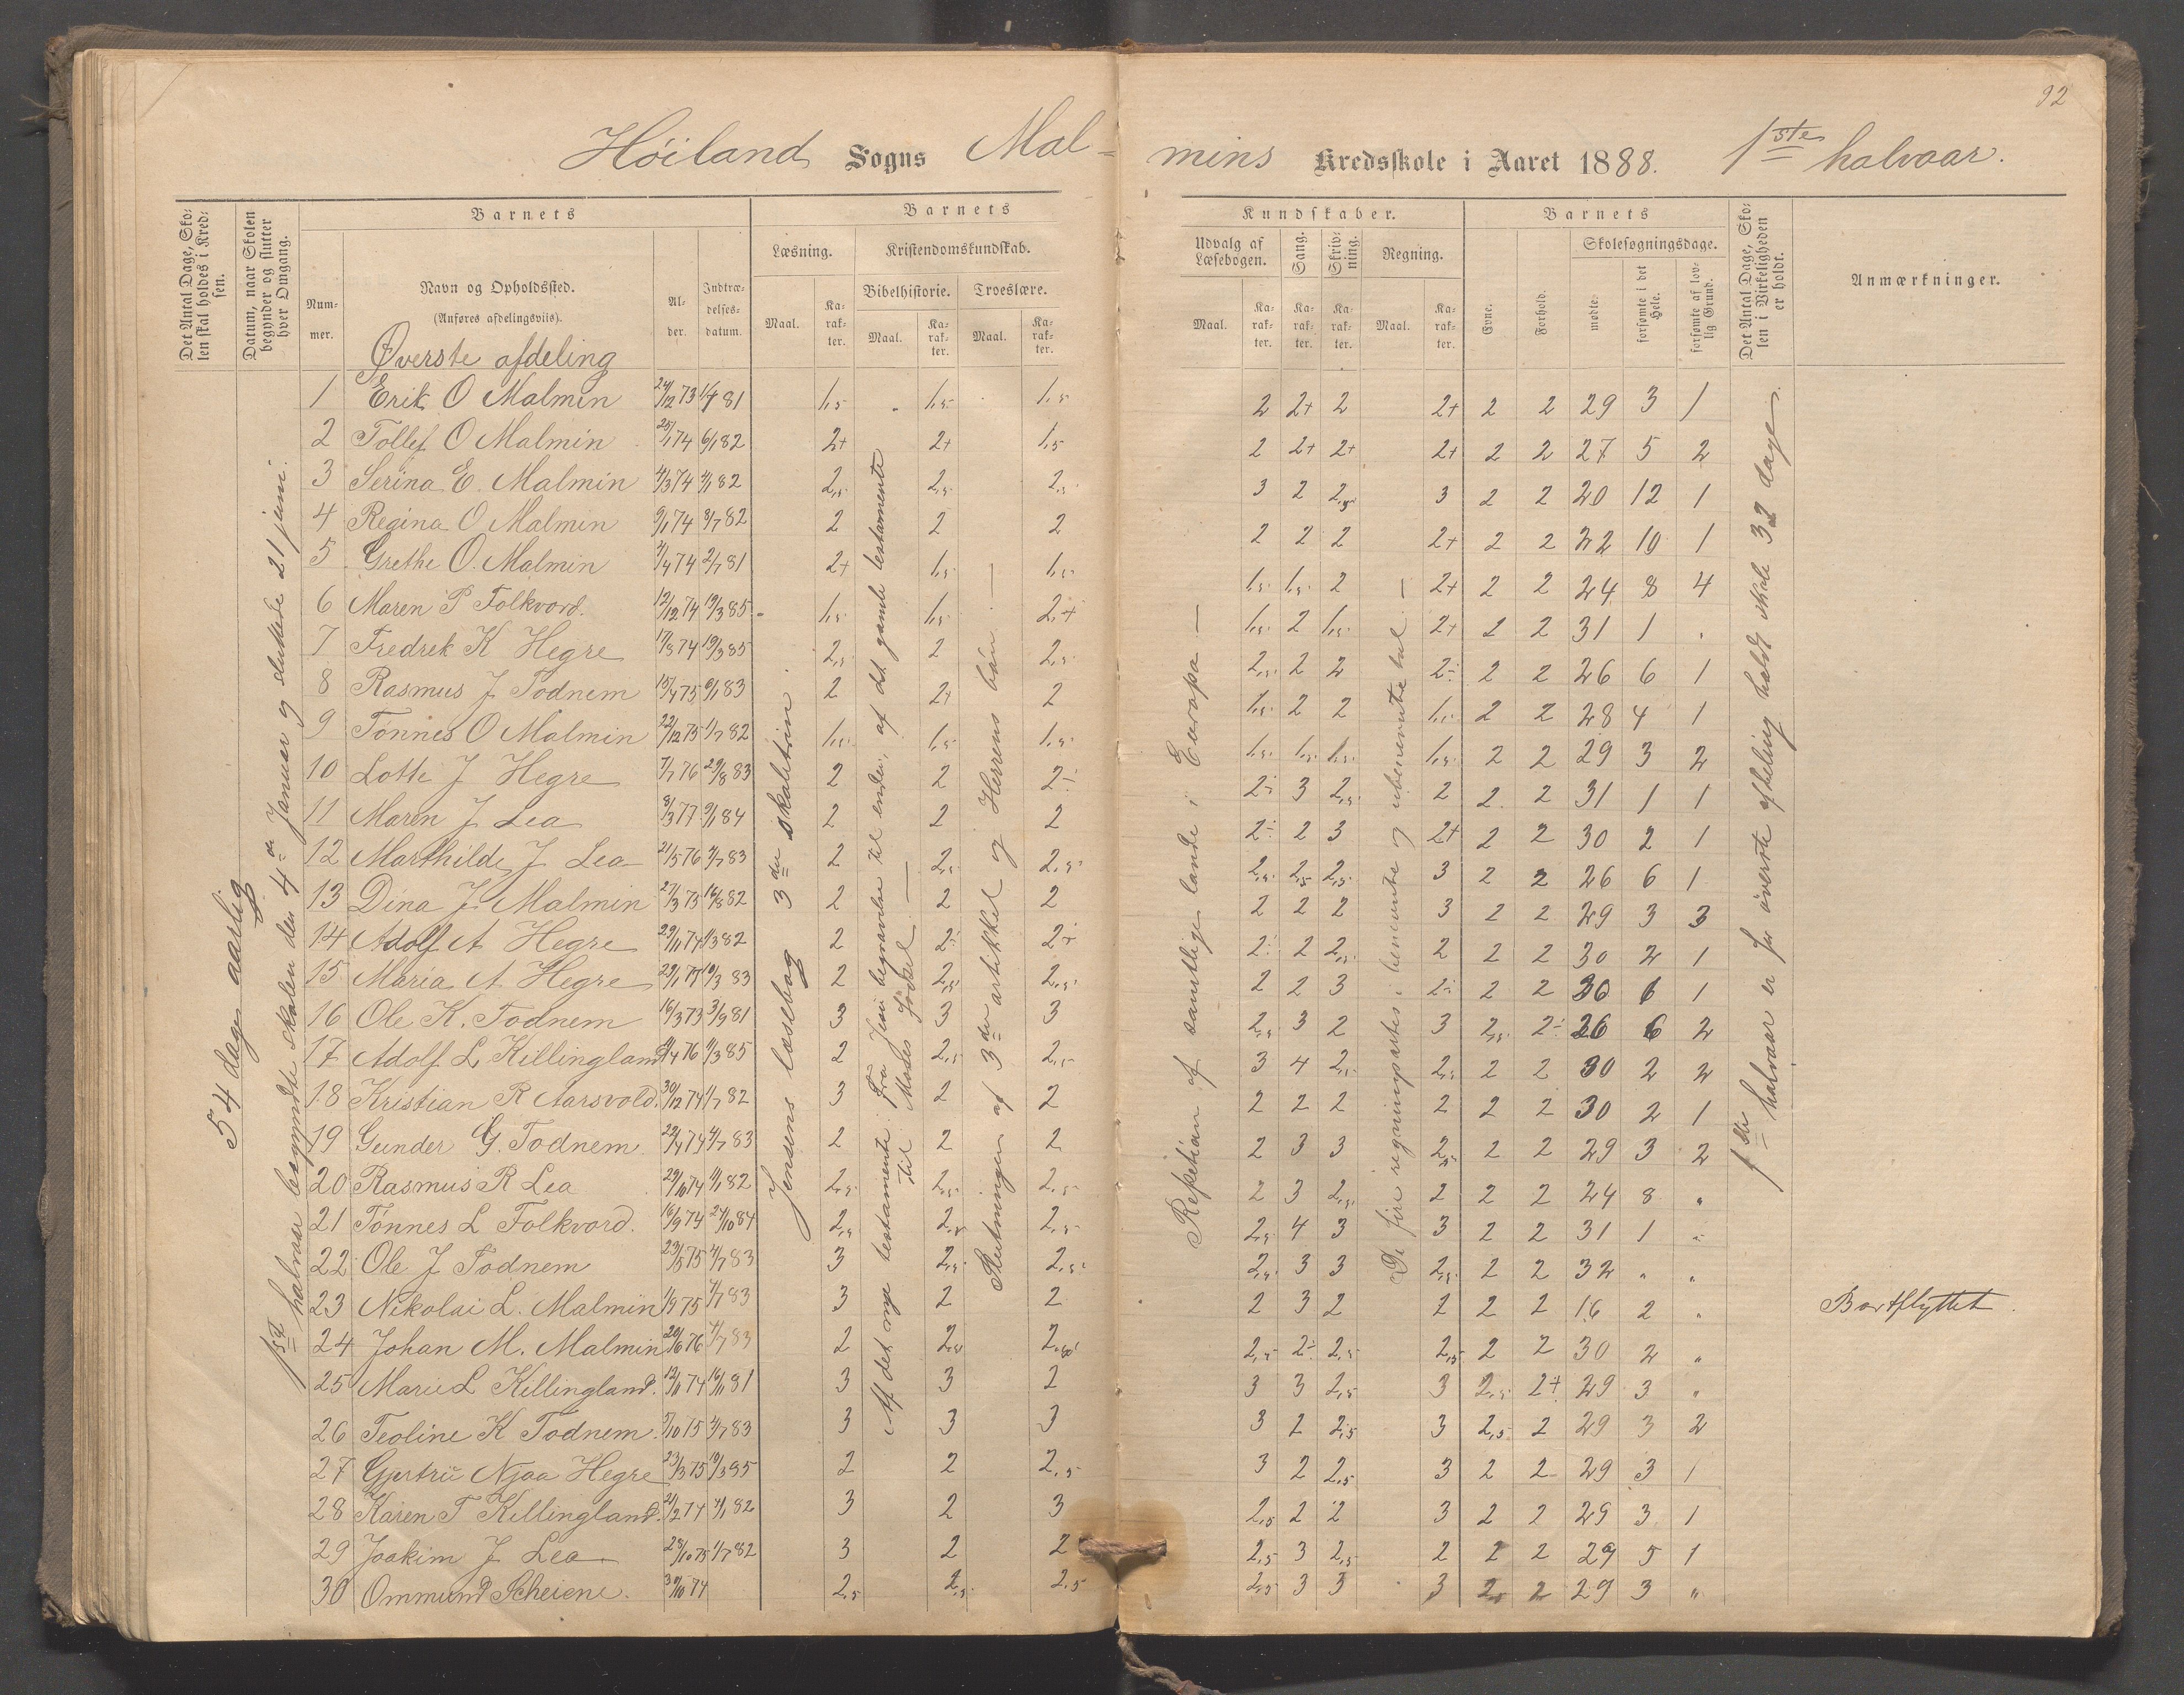 92
Höiland Sogns Mal-
mins Kredsskole i Aaret 1888. 1ste halvaar.
Det Antal Dage, Sko-
len skal holdes i Kred-
sen.
Datum, naar Skolen
begynder og slutter
hver Omgang.
Barnets
Num-
mer.
Navn og Opholdssted.
(Anføres afdelingsviis).
Al-
der.
Indtræ-
delses-
datum.
Barnets
Læsning.
Maal.
Ka-
rak-
ter.
Kristendomskundskab.
Bibelhistorie.
Maal.
Ka-
rak-
ter.
Troeslære.
Maal.
Ka-
rak-
ter.
Kundskaber.
Udvalg af
Læsebogen.
Maal.
Ka-
rak-
ter.
Sang.
Ka-
rak-
ter.
Skriv-
ning.
Ka-
rak-
ter.
Regning.
Maal.
Ka-
rak-
ter.
Barnets
Evne.
Forhold.
Skolesøgningsdage.
mødte.
forsømte i det
Hele.
forsømte af lov-
lig Grund.
Det Antal Dage, Sko-
len i Virkeligheden
er holdt.
Anmærkninger.
Øverste afdeling
54 dage aarlig
1ste halvaar begyndte skolen den 4de Januar og sluttede 21 juni.
Jensens læsebog 3die skoletrin
Af det nye testamente: Fra Jesu begravelse til ende; af det gamle testamente
til Moses Fødsel —
Slutningen af 3die artikkel og Herrens bön —
Repetition af samtlige lande i Europa —
De fire regningsarter i benævnte og ubenævnte tal —
1ste halvaar er for øverste afdeling holdt skole 32 dage.
1 Erik O Malmin 24/12 73 1/7 81 1,5 1,5 1,5 2 2+ 2 2+ 2 2 29 3 1
2 Tollef O Malmin 25/1 74 6/1 82 2+ 2+ 1,5 2 2+ 2+ 2+ 2 2 27 5 2
3 Serina E. Malmin 4/3 74 2/1 82 2,5 2,5 2,5 3 2 2,5 3 2 2 20 12 1
4 Regina O Malmin 9/1 74 3/7 82 2 2 2 2 2 2 2+ 2 2 22 10 1
5 Grethe O. Malmin 2/4 74 2/7 81 2+ 1,5 1,5 1,5 1,5 2 2+ 2 2 24 8 4
6 Maren P Folkvord. 12/12 74 19/3 85 1,5 1,5 2+ 1,5 2 1,5 2+ 2 2 31 1 "
7 Fredrek K Hegre 17/8 74 19/3 85 2,5 2 2,5 2,5 2 2 2÷ 2 2 26 6 1
8 Rasmus J Todnem 15/4 75 6/1 83 2 2+ 2 1,5 2 2 1,5 2 2 28 4 1
9 Tönnes O Malmin 22/12 75 1/7 82 1,5 1,5 1,5 1,5 1,5 1,5 1,5 2 2 29 3 2
10 Lotte J Hegre 7/7 76 29/8 83 2 2 2÷ 2÷ 3 2,5 2 2 2 31 1 1
11 Maren J Lea 8/3 77 9/1 84 2 2 2 2÷ 2 3 2+ 2 2 30 2 1
12 Marthilde J Lea 21/5 76 2/7 83 2 2,5 2,5 2,5 2,5 2,5 3 2 2 26 6 1
13 Dina J. Malmin 27/3 73 16/8 82 2 2 2 2 2 2 3 2 2 29 3 3
14 Adolf A Hegre 29/11 74 1/3 82 2 2÷ 2÷ 2÷ 2 2,5 2 2 2 30 2 1
15 Maria A Hegre 29/1 75 19/3 83 2 2,5 2,5 2 2 3 2÷ 2 2 26 6 1
16 Ole K. Todnem 16/3 73 3/9 81 3 3 3 2,5 3 2 3 2,5 2÷ 26 6 2
17 Adolf L Killingland 11/4 76 1/3 85 2 2,5 2,5 3 4 2,5 2,5 2 2 30 2 2
18 Kristian R Aarsvold. 30/12 74 1/7 82 3 2 2 2 2 2 2 2 2 30 2 1
19 Gunder G. Todnem. 22/4 74 4/7 83 2 2 2 2 3 3 2,5 2 2 29 3 2
20 Rasmus R Lea 29/10 74 11/1 82 2,5 2,5 2,5 2 3 2,5 2 2 2 24 8 "
21 Tönnes L Folkvord. 16/9 74 27/10 84 2,5 2,5 2,5 2,5 4 3 3 2 2 31 1 "
22 Ole J Todnem 23/5 75 4/7 83 3 2,5 2,5 2,5 3 3 2,5 2 2 32 " "
23 Nikolai L. Malmin 1/9 75 4/7 83 3 2 2 2 3 2 2 2 2 16 2 " Bortflyttet.
24 Johan M. Malmin 20/6 76 4/7 83 2 2,5 2,5 2,5 2÷ 2,5 2,5 2 2 30 2 "
25 Marie L Killingland. 12/11 74 16/11 81 3 3 2 3 3 2,5 3 2,5 2+ 29 3 "
26 Teoline K Todnem. 5/10 75 2/7 83 3 3 3 3 2 2,5 3 2,5 2 29 3 2
27 Gjertrü Njaa Hegre 23/3 75 19/3 85 2 2 2,5 3 2 2,5 3 2 2 29 3 1
28 Karen T Killingland. 21/2 74 4/1 82 3 2 3 2,5 2 2 3 2 2 29 3 1
29 Joakim J Lea 28/10 75 1/7 82 3 2 2 2,5 3 2,5 2 2 2 29 5 1
30 Ommund Scheiene. 30/10 74 2,5 2,5 2,5 2,5 3 3 3 2 2 29 3 "